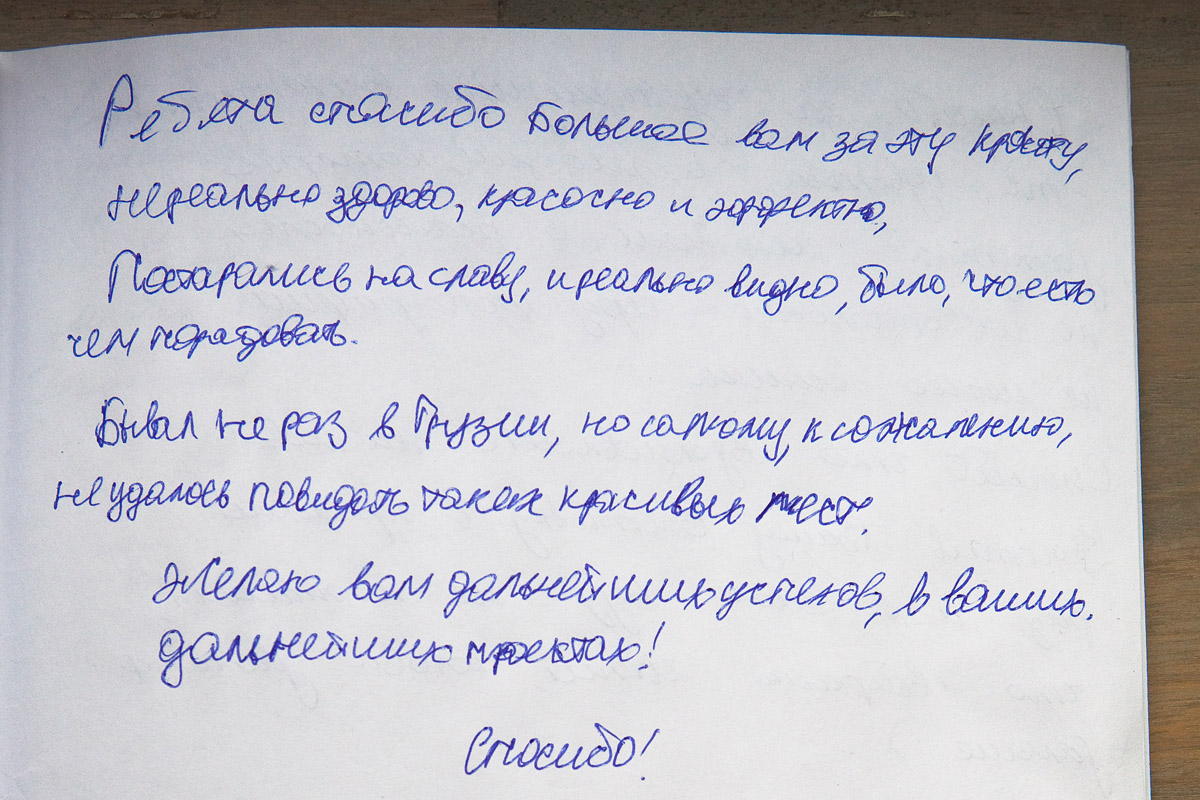 Ребята спасибо большое вам за эту
нереально здорово, красочно и эффектно,
Постарались на славу, и реально видно, было, что есть
чем порадовать.
Бывал не раз в Грузии, но самому, к сожалению,
не удалось повидать таких красивых мест.
Желаю вам дальнейших успехов, в ваших.
дальнейших проектах!
Спасибо!